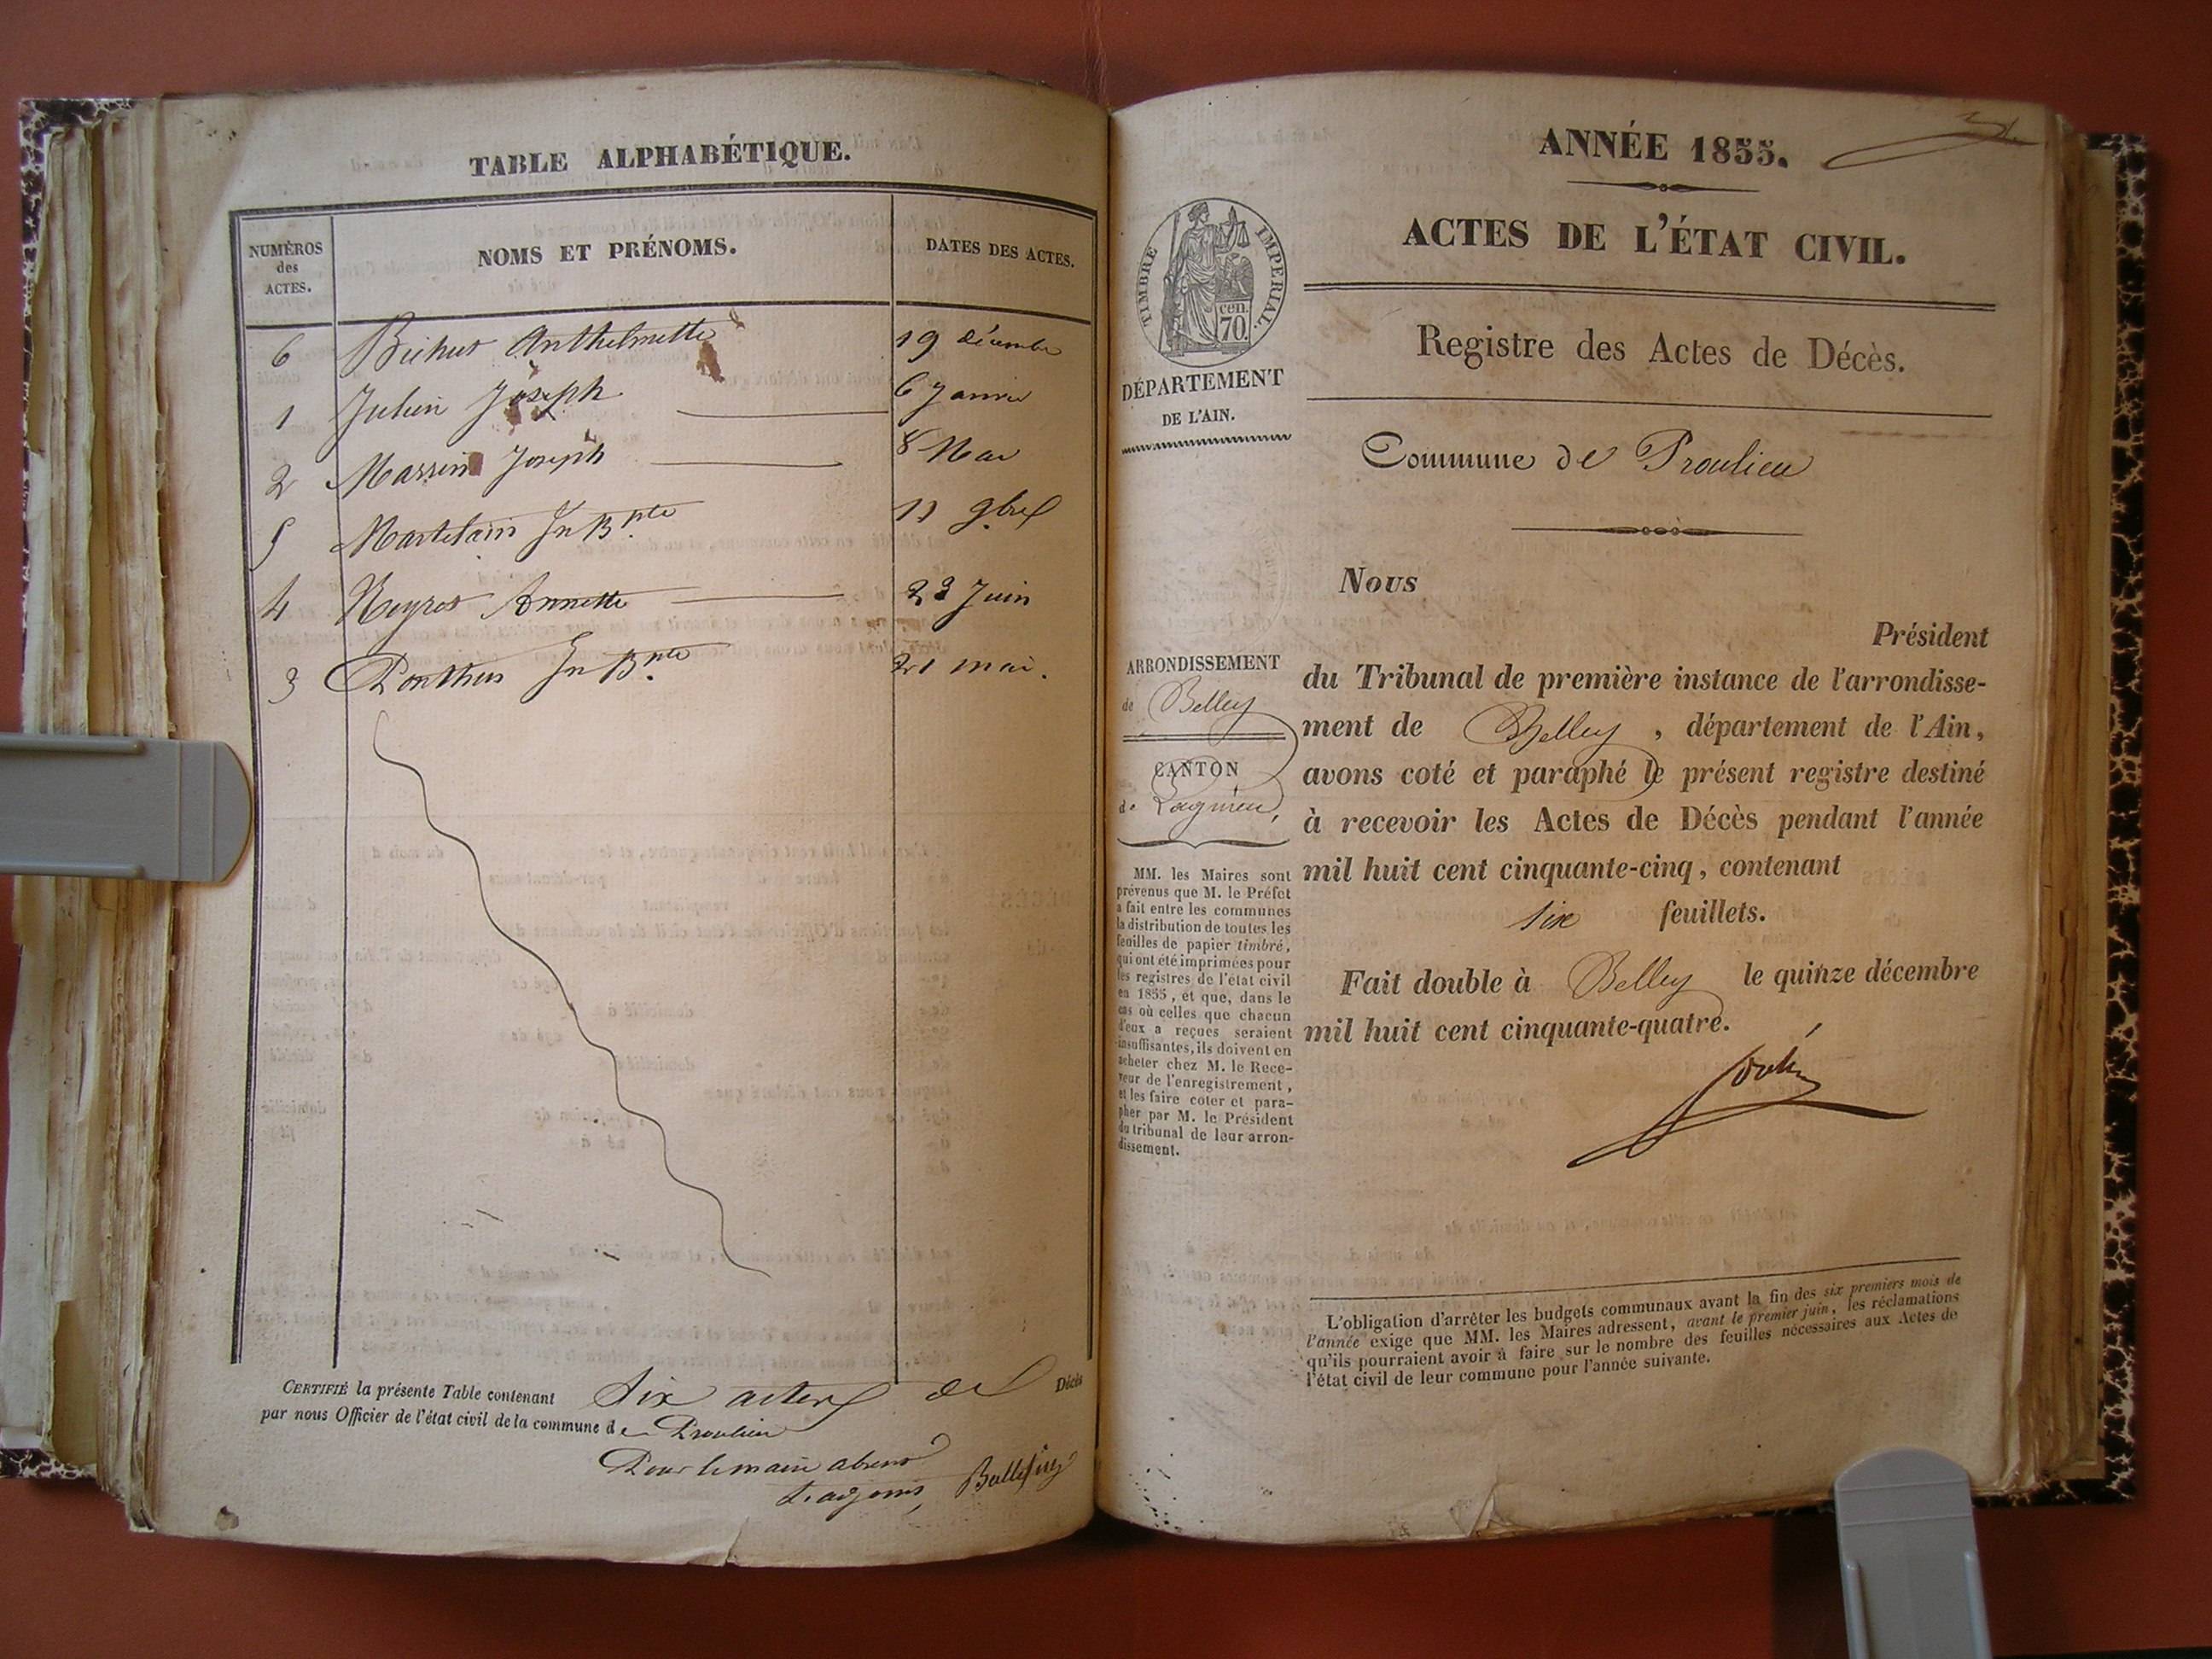 TABLE ALPHABÉTIQUE.
NUMÉROS
des
ACTES.
NOMS ET PRÉNOMS.
DATES DES ACTES.
6 Anthelmette 19 décembre
1 Julien Joseph 6 Janvier
2 Massin Joseph 8 Mar
5 Martelain Jn Bpte 11 9bre
4 Neyret Annette 23 Juin
3 Ponthus Jn Bpte 21 mai.
CERTIFIÉ la présente Table contenant six actes de Décès
par nous Officier de l'état civil de la commune de Proulieu
Pour le maire absent
L'adjoint,
ANNÉE 1855.
ACTES DE L'ÉTAT CIVIL.
Registre des Actes de Décès.
Commune de Proulieu
TIMBRE IMPERIAL.
cen.
70.
DÉPARTEMENT
DE L'AIN.
ARRONDISSEMENT
de Belley
CANTON
de Lagnieu,
MM. les Maires sont
prévenus que M. le Préfet
a fait entre les communes
la distribution de toutes les
feuilles de papier timbré,
qui ont été imprimées pour
les registres de l'état civil
en 1855, et que, dans le
cas où celles que chacun
d'eux a reçues seraient
insuffisantes, ils doivent en
acheter chez M. le Rece-
veur de l'enregistrement,
et les faire coter et para-
pher par M. le Président
du tribunal de leur arron-
dissement.
Nous
Président
du Tribunal de première instance de l'arrondisse-
ment de Belley, département de l'Ain,
avons coté et paraphé le présent registre destiné
à recevoir les Actes de Décès pendant l'année
mil huit cent cinquante-cinq, contenant
six feuillets.
Fait double à Belley le quinze décembre
mil huit cent cinquante-quatre.
L'obligation d'arrêter les budgets communaux avant la fin des six premiers mois de
l'année exige que MM. les Maires adressent, avant le premier juin, les réclamations
qu'ils pourraient avoir à faire sur le nombre des feuilles nécessaires aux Actes de
l'état civil de leur commune pour l'année suivante.